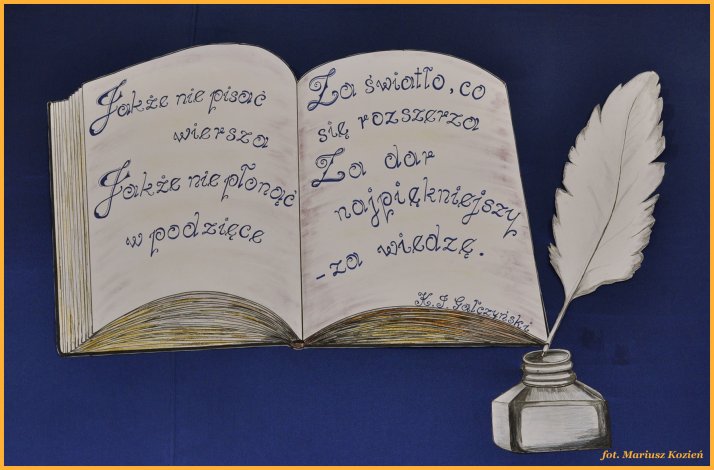 Jakże nie pisać
wiersza
Jakże nie płonąć
w podzięce
Za światło, co
się rozszerza
Za dar
najpiękniejszy
- za wiedzę.
K. I. Gałczyński
fot. Mariusz Kozień